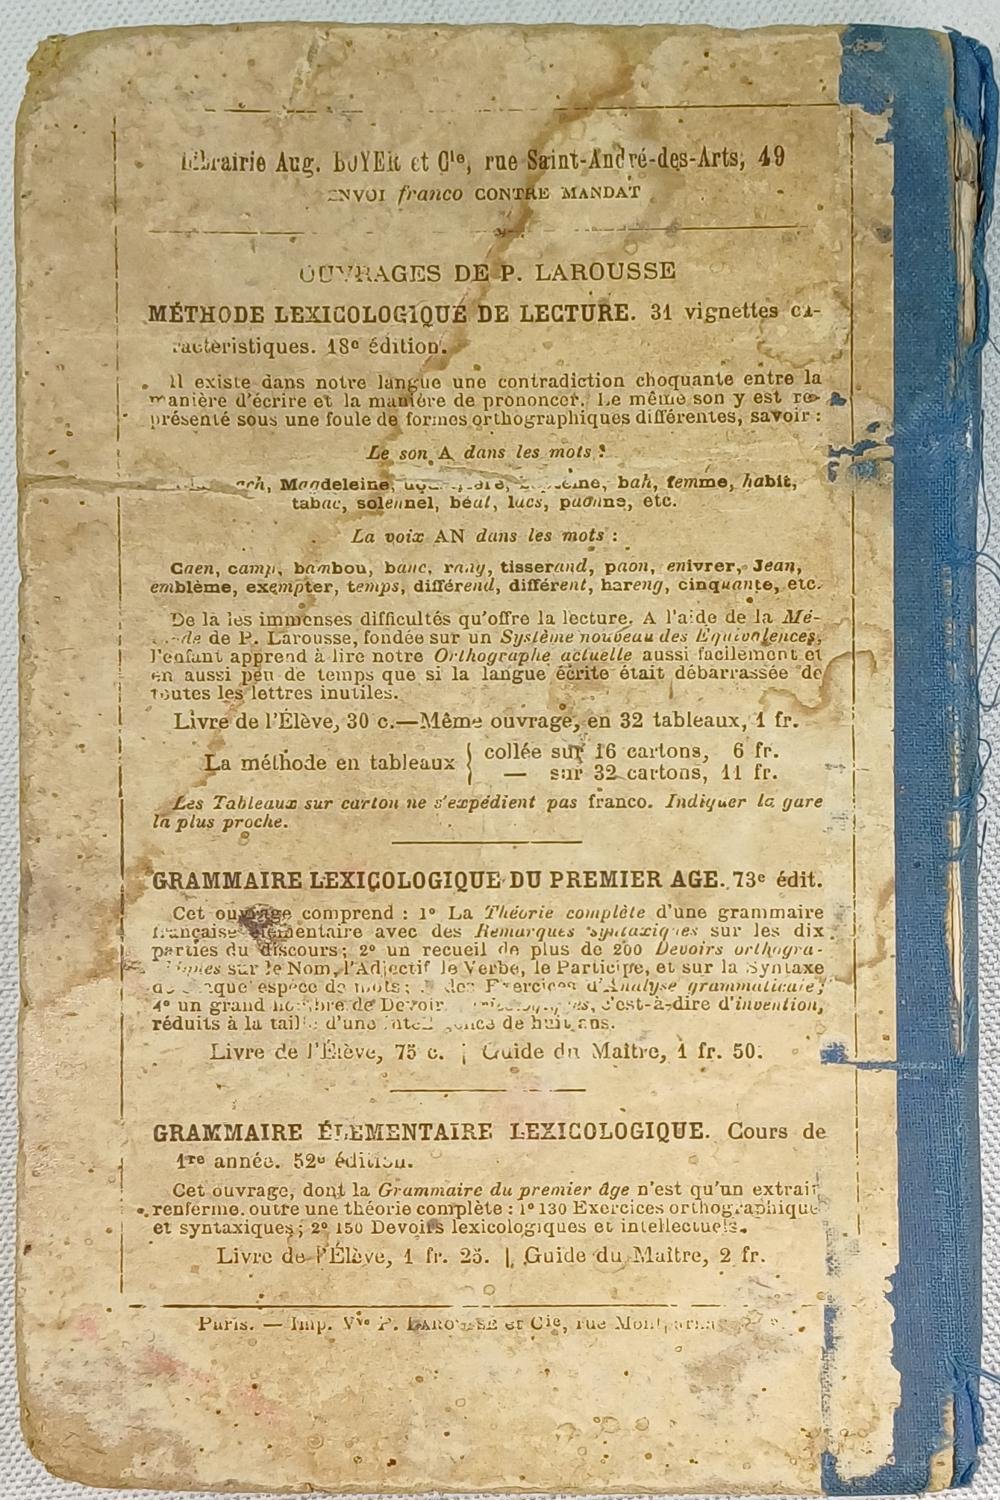 Librairie Aug. BOYER et Cie, rue Saint-André-des-Arts, 49
ENVOI franco CONTRE MANDAT
OUVRAGES DE P. LAROUSSE
MÉTHODE LEXICOLOGIQUE DE LECTURE. 31 vignettes ca-
ractéristiques. 18e édition.
Il existe dans notre langue une contradiction choquante entre la
manière d'écrire et la manière de prononcer. Le même son y est re-
présenté sous une foule de formes orthographiques différentes, savoir :
Le son A dans les mots :
Magdeleine, bah, femme, habit,
tabac, solennel, béat, lacs, paonne, etc.
La voix AN dans les mots :
Caen, camp, bambou, banc, rang, tisserand, paon, enivrer, Jean,
emblème, exempter, temps, différend, différent, hareng, cinquante, etc.
De là les immenses difficultés qu'offre la lecture. A l'aide de la Mé-
de P. Larousse, fondée sur un Système nouveau des Équivalences,
l'enfant apprend à lire notre Orthographe actuelle aussi facilement et
en aussi peu de temps que si la langue écrite était débarrassée de
toutes les lettres inutiles.
Livre de l'Élève, 30 c.—Même ouvrage, en 32 tableaux, 1 fr.
La méthode en tableaux { collée sur 16 cartons, 6 fr.
— sur 32 cartons, 11 fr.
Les Tableaux sur carton ne s'expédient pas franco. Indiquer la gare
la plus proche.
GRAMMAIRE LEXICOLOGIQUE DU PREMIER AGE. 73e édit.
Cet ouvrage comprend : 1º La Théorie complète d'une grammaire
française élémentaire avec des Remarques syntaxiques sur les dix
parties du discours; 2º un recueil de plus de 200 Devoirs orthogra-
sur le Nom, l'Adjectif le Verbe, le Participe, et sur la Syntaxe
de chaque espèce de mots; des Exercices d'Analyse grammaticale;
4º un grand nombre de Devoirs c'est-à-dire d'invention,
réduits à la taille d'une intelligence de huit ans.
Livre de l'Élève, 75 c. | Guide du Maître, 1 fr. 50.
GRAMMAIRE ÉLÉMENTAIRE LEXICOLOGIQUE. Cours de
1re année. 52e édition.
Cet ouvrage, dont la Grammaire du premier âge n'est qu'un extrait,
renferme, outre une théorie complète : 1º 130 Exercices orthographiques
et syntaxiques; 2º 150 Devoirs lexicologiques et intellectuels.
Livre de l'Élève, 1 fr. 25. | Guide du Maître, 2 fr.
Paris. — Imp. Vve P. LAROUSSE et Cie, rue Montparnasse